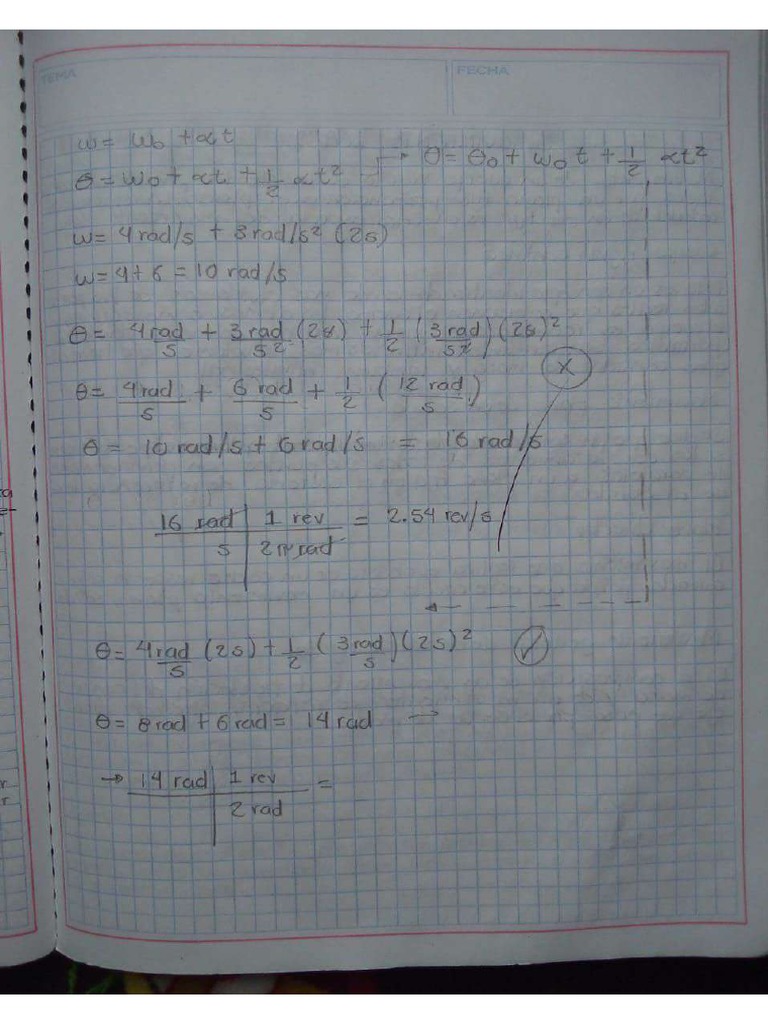 TEMA
FECHA
ω = ω₀ + αt
θ = ω₀ + αt + 1/2 αt² → θ = θ₀ + ω₀t + 1/2 αt²
ω = 4 rad/s + 3 rad/s² (2s)
ω = 4 + 6 = 10 rad/s
θ = 4 rad/s + 3 rad/s² (2s) + 1/2 (3 rad/s²)(2s)²
x
θ = 4 rad/s + 6 rad/s + 1/2 (12 rad/s)
θ = 10 rad/s + 6 rad/s = 16 rad/s
16 rad/s | 1 rev/2π rad = 2.54 rev/s
θ = 4 rad/s (2s) + 1/2 (3 rad/s)(2s)² ✓
θ = 8 rad + 6 rad = 14 rad →
→ 14 rad | 1 rev/2 rad =